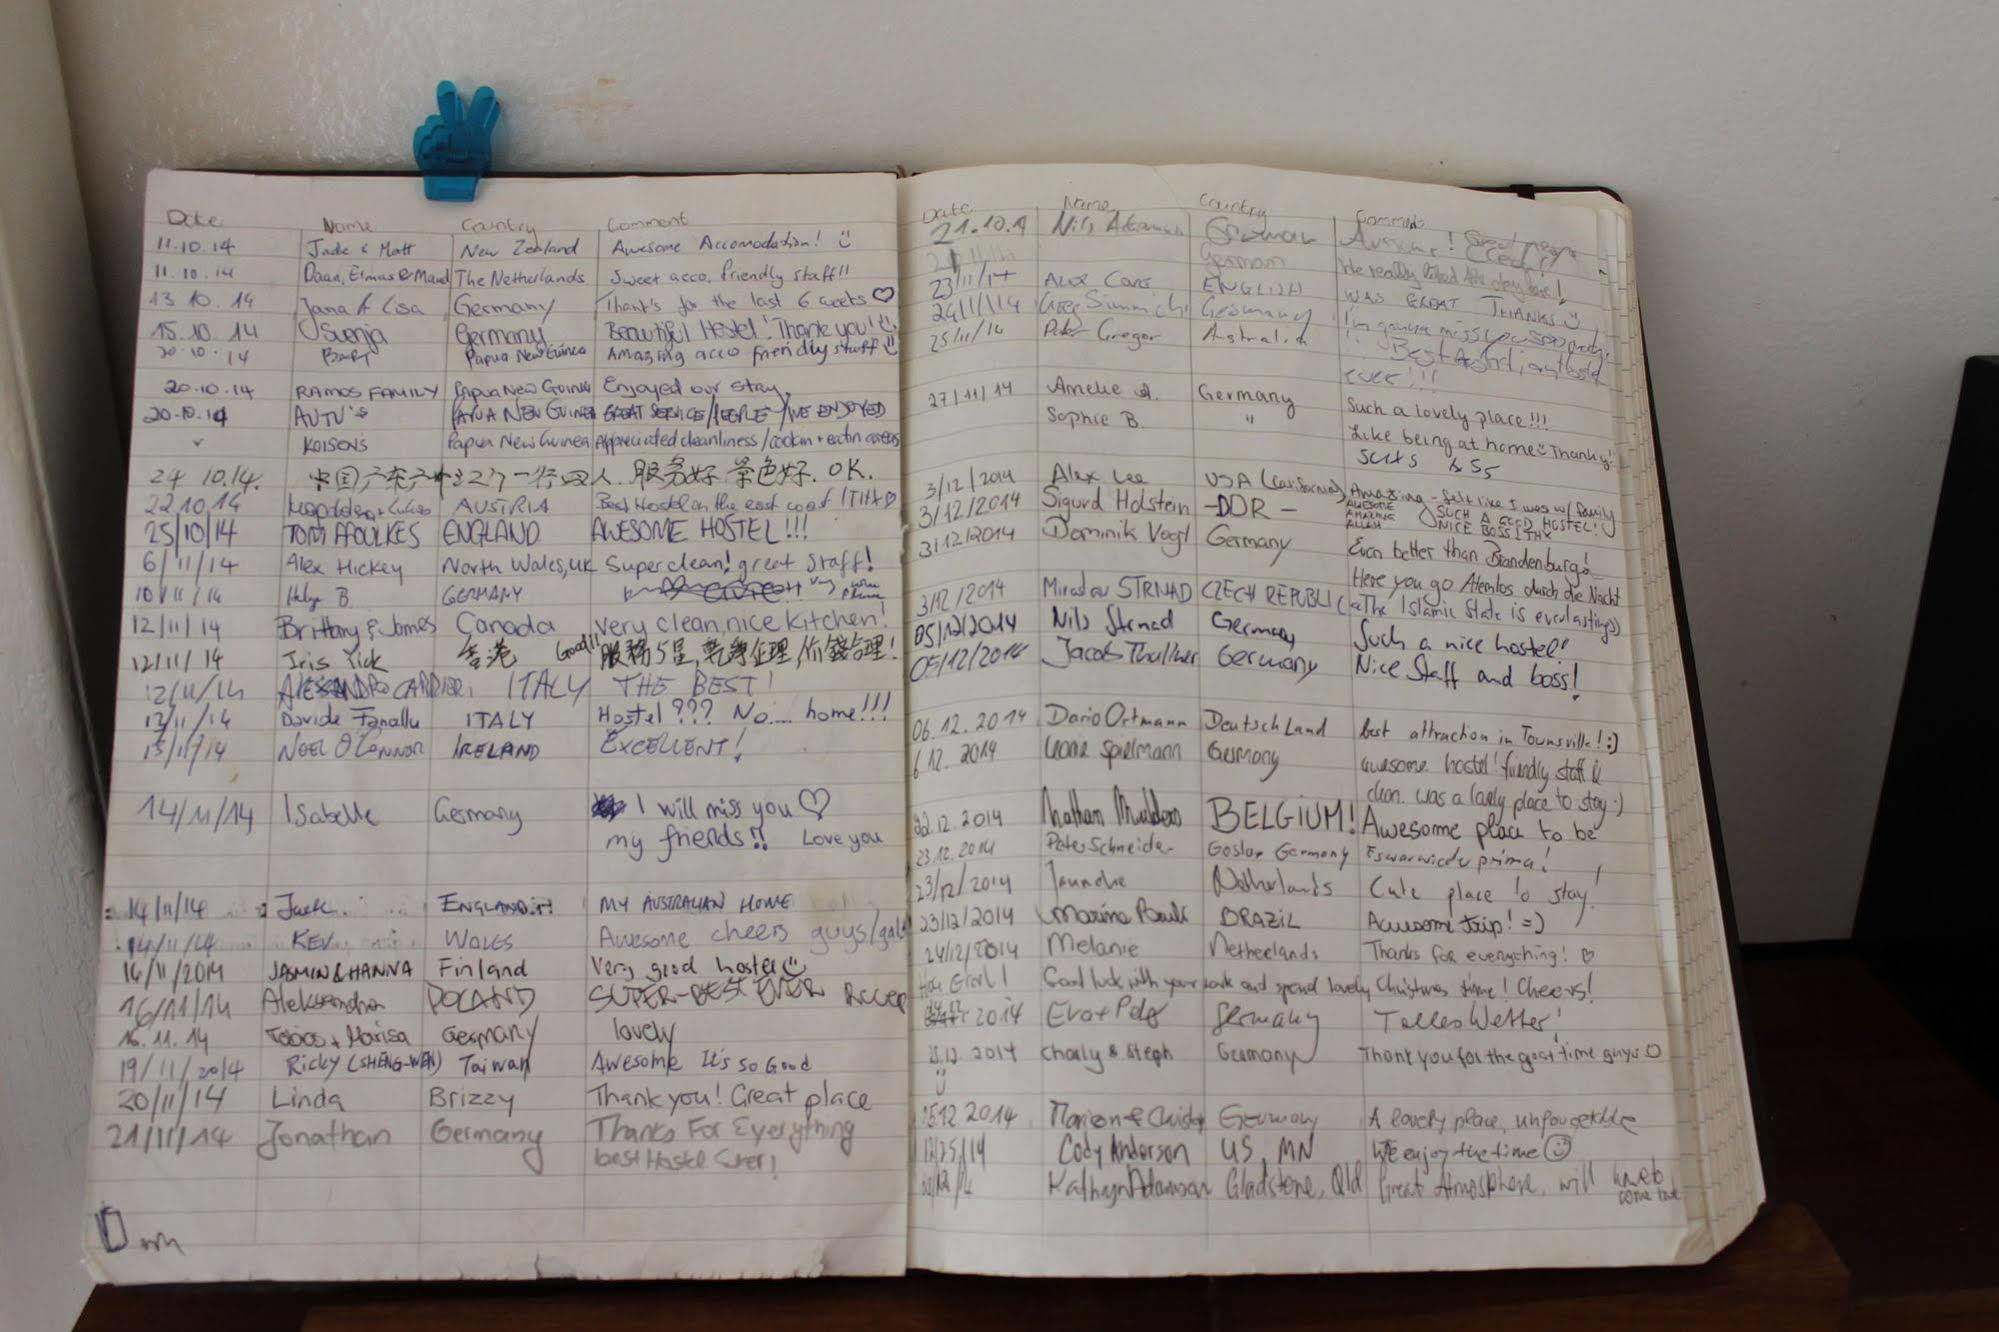 Date Name Country Comment
11.10.14 Jade & Matt New Zealand Awesome Accomodation!
11.10.14 Daan, Elmas & Maud The Netherlands Sweet acco, friendly staff!!
13.10.14 Jana & Lisa Germany Thank's for the last 6 weeks ♡
15.10.14 Svenja Germany Beautiful Hostel! Thank you!
20.10.14 Papua New Guinea Amazing acco friendly staff
20.10.14 RAMOS FAMILY Papua New Guinea Enjoyed our stay
20.10.14 PAPUA NEW GUINEA GREAT SERVICE/PEOPLE/IVE ENJOYED
Papua New Guinea Appreciated cleanliness/cookin + eatin areas
24 10.14. 中国广东 一行四人. 服务好 景色好. OK.
22.10.14 AUSTRIA Best Hostel on the east coast
25/10/14 TOM FFOULKES ENGLAND AWESOME HOSTEL!!!
6/11/14 Alex Hickey North Wales, UK Super clean! great staff!
10/11/14 Helge B. GERMANY
12/11/14 Brittany & James Canada Very clean, nice kitchen!
12/11/14 Iris Yick 香港 Good!! 服務5星, 乾淨企理, 价錢合理!
12/11/14 ITALY THE BEST!
12/11/14 Davide ITALY Hostel??? No.... home!!!
13/11/14 NOEL O'CONNOR IRELAND EXCELLENT!
14/11/14 Isabelle Germany I will miss you ♡
my friends!! Love you
14/11/14 Jack. ENGLAND MY AUSTRALIAN HOME
14/11/14 KEV WALES Awesome cheers guys/gals
16/11/2014 JASMIN & HANNA Finland Very good hostel
16/11/14 Aleksandra POLAND SUPER-BEST EVER
16.11.14 Tobias + Marisa Germany lovely
19/11/2014 Ricky (SHENG-WEN) Taiwan Awesome It's so Good
20/11/14 Linda Brizzy Thank you! Great place
21/11/14 Jonathan Germany Thanks For Everything
best Hostel Ever!
Date Name Country Comment
21.10.14 Nils German
German We really liked the
23/11/14 Alex ENGLISH WAS GREAT THANKS
24/11/14 Germany I'm gonna miss you
25/11/14 Peter Gregor Australia Best
ever!!!
27/11/14 Amelie A. Germany Such a lovely place!!!
Sophie B. " Like being at home Thanky!
3/12/2014 Alex Lee USA (California) Amazing - felt like I was w/ family
3/12/2014 Sigurd Holstein -DDR- AWESOME AMAZING SUCH A GOOD HOSTEL!
NICE BOSS! THX
3/12/2014 Dominik Vogl Germany Even better than Brandenburg!
Here you go Atemlos durch die Nacht
3/12/2014 Miroslav STRNAD CZECH REPUBLIC The Islamic State is everlasting
05/12/2014 Nils Germany Such a nice hostel!
05/12/2014 Jacob Germany Nice Staff and boss!
06.12.2014 Dario Ortmann Deutschland Best attraction in Townsville! :)
6.12.2014 Spielmann Germany awesome hostel! friendly staff &
clean. was a lovely place to stay :)
22.12.2014 Nathan Mulders BELGIUM! Awesome place to be
23.12.2014 Peter Schneider Goslar Germany Es war wieder prima!
23/12/2014 Netherlands Cute place to stay!
23/12/2014 Marina BRAZIL Awesome trip! =)
24/12/2014 Melanie Netherlands Thanks for everything! ♡
Good luck with your work and spend lovely Christmas time! Cheers!
2014 Eva + Peter Germany Tolles Wetter!
2014 Charly & Steph Germany Thank you for the great time guys
25.12.2014 Germany A lovely place, unforgettable
12/25/14 Cody Anderson US, MN We enjoy the time
Kathryn Adamson Gladstone, Qld Great Atmosphere, will have to
come back